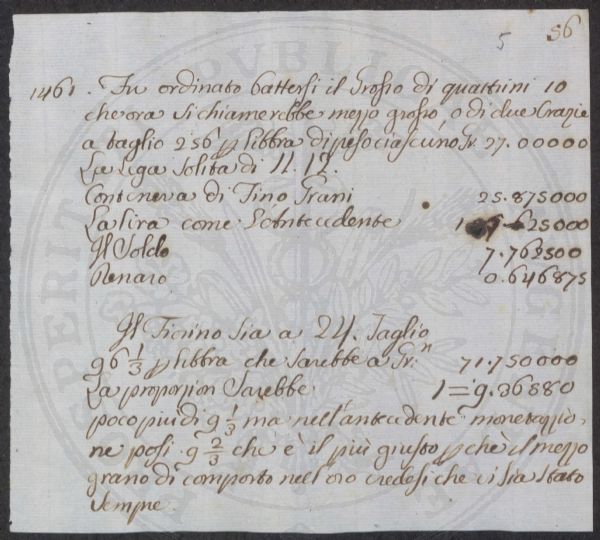 5 56
1461. Fu ordinato battersi il Grosso di quattrini 10
che ora si chiamerebbe mezzo grosso, o di due Crazie
a taglio 256 p libbra di peso ciascuno Gr. 27.00000
La Lega solita di 11. 12.
Conteneva di Fino Grani 25.875000
La Lira come L'Antecedente 625000
Il Soldo 7.762500
Denaro 0.646875
Il Fiorino sia a 24. Taglio
96 1/3 p libbra che sarebbe a Grⁿ 71.750000
La proporzion Sarebbe 1=9.36880
poco piu di 9 1/3 ma nell'antecedente monetazzio-
ne posi 9 2/3 che è il più giusto p che il mezzo
grano di comporto nell'oro credesi che vi sia stato
sempre.
PVBLICHE